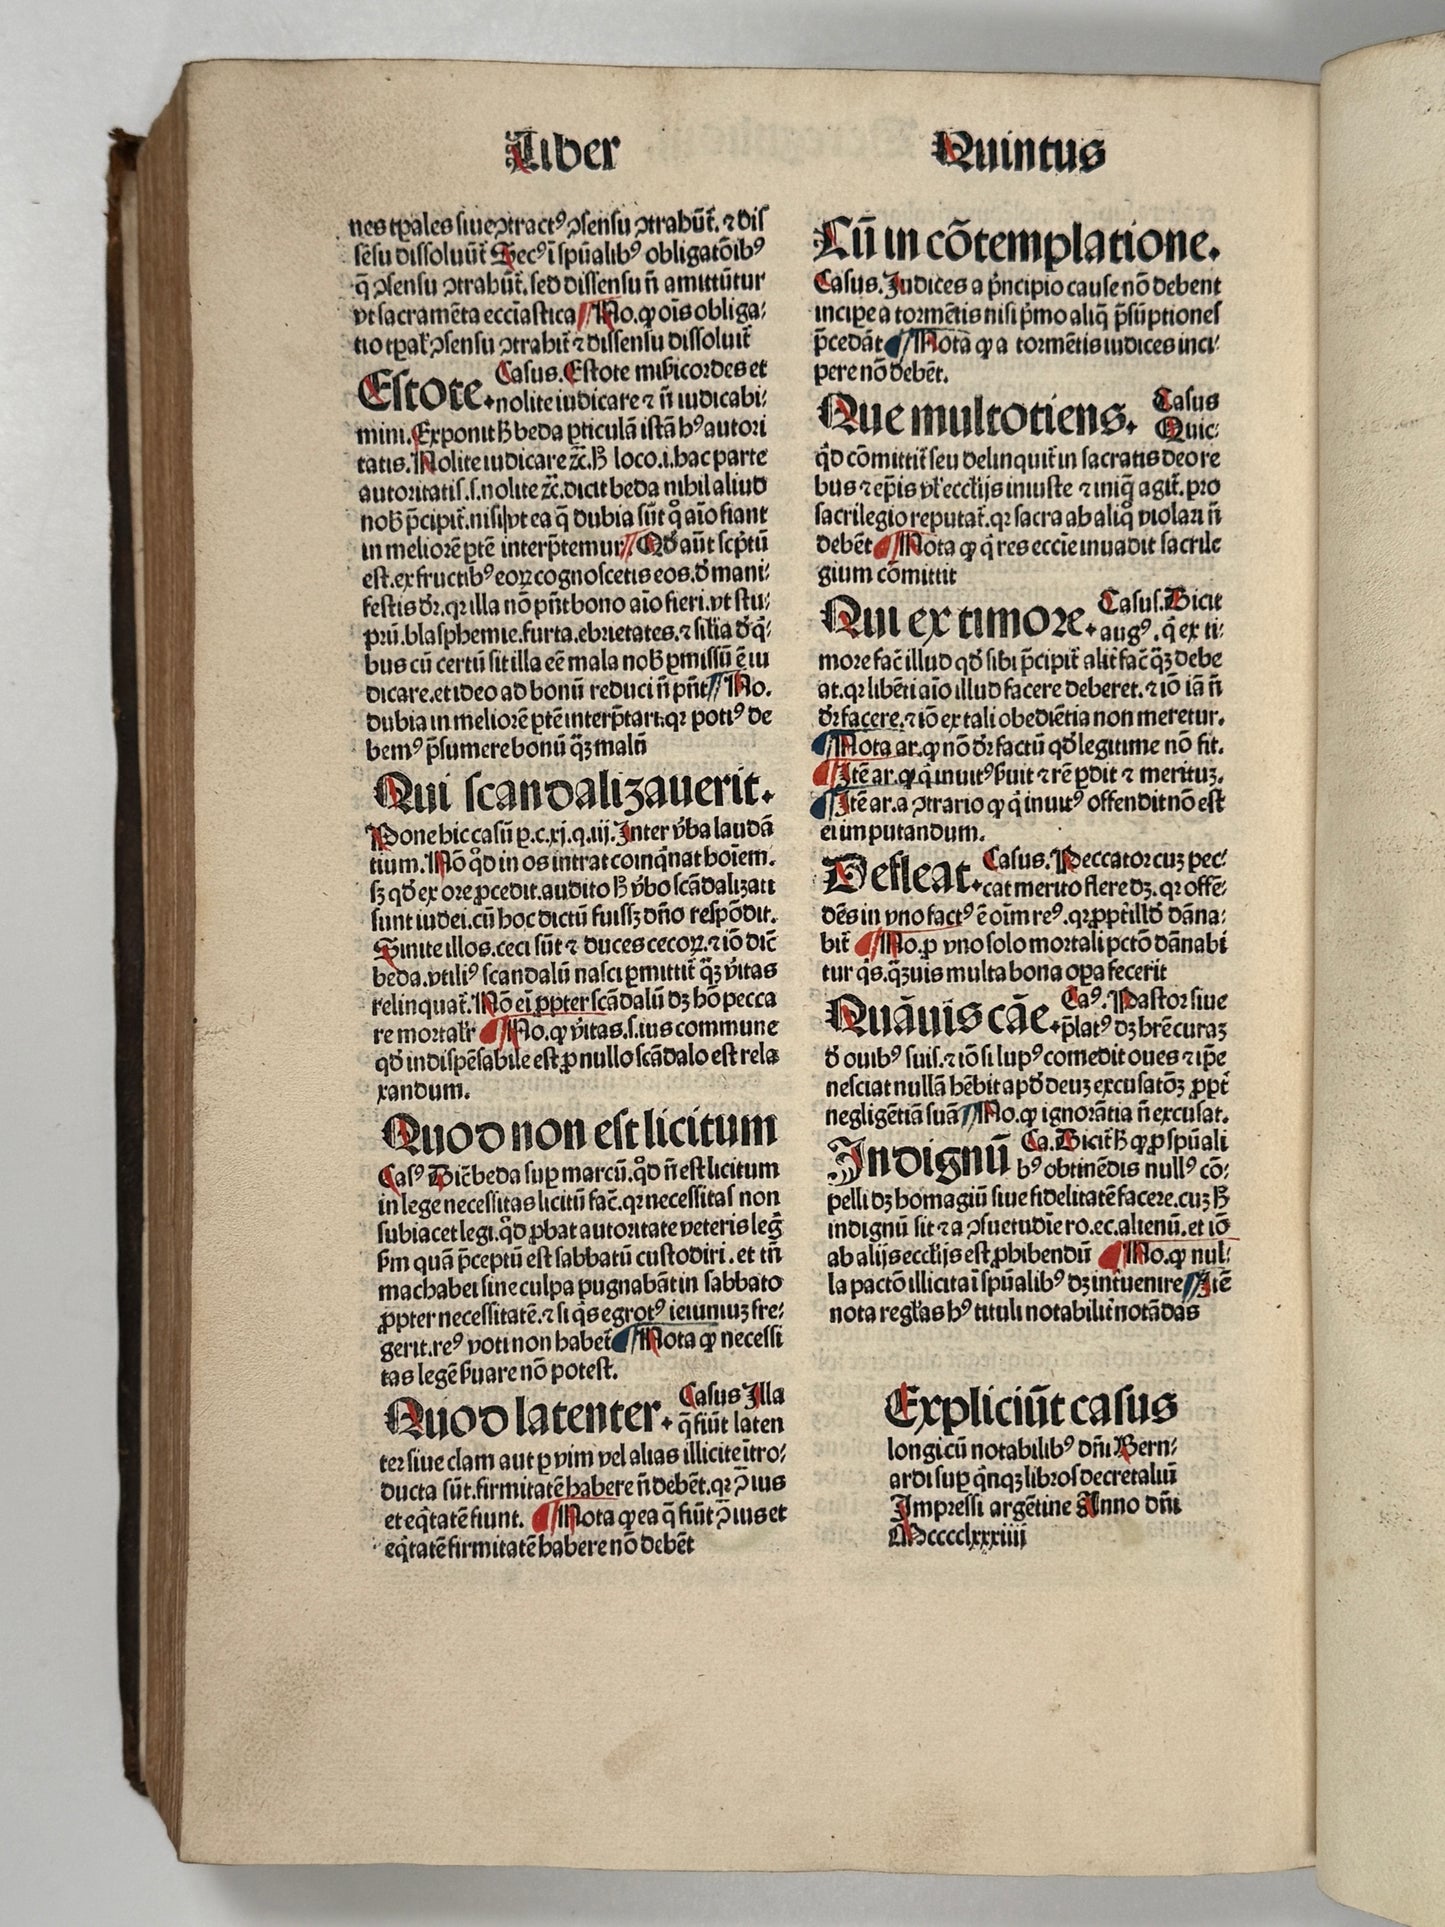 Liber Quintus
nes tꝑales siue ꝯtractꝰ ꝯsensu ꝯtrahūt̄. ⁊ dis
sēsu dissoluūt̄ Secꝰ ī spūalibꝰ obligatōibꝰ
q̄ ꝯsensu ꝯtrahūt̄. sed dissensu n̄ amittūtur
vt sacramēta ecciastica No. ꝙ oīs obliga⸗
tio tꝑal' ꝯsensu ꝯtrahit̄ ⁊ dissensu dissoluit̄
Estote. Casus. Estote misicordes et
nolite iudicare ⁊ n̄ iudicabi⸗
mini. Exponit ħ beda ꝑticulā istā hꝰ autori
tatis. Nolite iudicare ⁊c̄. ħ loco. i. hac parte
autoritatis. s. nolite ⁊c̄. dicit beda nihil aliud
nob̄ p̄cipit̄. nisi vt ea q̄ dubia sūt qͦ aīo fiant
in meliorē ꝑtē interp̄temur Qd̄ aūt scp̄tū
est. ex fructibꝰ eoꝝ cognoscetis eos. d̄ mani⸗
festis dr̄. qꝛ illa nō pn̄t bono aīo fieri. vt stu⸗
prū. blasphemie. furta. ebrietates. ⁊ silīa d̄ q̄⸗
bus cū certū sit illa eē mala nob̄ ꝑmissū ē iu
dicare. et ideo ad bonū reduci n̄ pn̄t No.
dubia in meliorē ꝑtē interp̄tari. qꝛ potiꝰ de
bemꝰ p̄sumere bonū q̄ꝫ malū
Qui scandalizauerit.
Pone hic casū ꝑ. c. xj. q. iij. Inter v̄ba laudā
tium. Nō qͦd in os intrat coinq̄nat hoīem.
sꝫ qd̄ ex ore ꝓcedit. audito ħ v̄bo scādalizati
sunt iudei. cū hoc dictū fuissꝫ dn̄o respōdit.
Sinite illos. ceci sūt ⁊ duces cecoꝝ. ⁊ iō dic̄
beda. vtiliꝰ scandalū nasci ꝑmittit̄ q̄ꝫ v̄itas
relinquat̄. Nō ei ꝓpter scādalū dꝫ hō pecca
re mortalr̄ No. ꝙ v̄itas. s. ius commune
qd̄ indispēsabile est ꝓ nullo scādalo est rela
xandum.
Quod non est licitum
Casꝰ Dic̄ beda suꝑ marcū. qͦd n̄ est licitum
in lege necessitas licitū fac̄. qꝛ necessitas non
subiacet legi. qͦd ꝓbat autoritate veteris leḡ
ẜm quā p̄ceptū est sabbatū custodiri. et tn̄
machabei sine culpa pugnabāt in sabbato
ꝓpter necessitatē. ⁊ si q̄s egrotꝰ ieiuniuꝫ fre⸗
gerit. reꝰ voti non habet̄ Nota ꝙ necessi
tas legē ẜuare nō potest.
Quod latenter. Casus Illa
q̄ fiūt laten
ter siue clam aut ꝑ vim vel alias illicite ītro⸗
ducta sūt. firmitatē habere n̄ debēt. qꝛ ꝯ̄ ius
et eq̄tatē fiunt. Nota ꝙ ea q̄ fiūt ꝯ̄ ius et
eq̄tatē firmitatē habere nō debēt
Cū in cōtemplatione.
Casus. Iudices a p̄ncipio cause nō debent
incipe a tormētis nisi p̄mo aliq̄ p̄sūptiones
p̄cedāt Nota ꝙ a tormētis iudices inci⸗
pere nō debēt.
Que multotiens. Casus
Quic⸗
q̄d cōmittit̄ seu delinquit̄ in sacratis deo re
bus ⁊ ep̄is vl' eccl'ijs iniuste ⁊ iniq̄ agit̄. pro
sacrilegio reputat̄. qꝛ sacra ab aliqͦ violari n̄
debēt Nota ꝙ q̄ res eccīe inuadit sacrile
gium cōmittit
Qui ex timore. Casus. Dicit
augꝰ. q̄ ex ti⸗
more fac̄ illud qd̄ sibi p̄cipit̄ alit̄ fac̄ q̄ꝫ debe
at. qꝛ libēti aīo illud facere deberet. ⁊ iō iā n̄
dr̄ facere. ⁊ iō ex tali obediētia non meretur.
Nota ar. ꝙ nō dr̄ factū qd̄ legitime nō fit.
Itē ar. ꝙ q̄ inuitꝰ ẜuit ⁊ rē ꝑdit ⁊ merituꝫ.
Itē ar. a ꝯtrario ꝙ q̄ inuitꝰ offendit nō est
ei imputandum.
Defleat. Casus. Peccator cuꝫ pec⸗
cat merito flere dꝫ. qꝛ offē⸗
dēs in vno factꝰ ē oīm reꝰ. qꝛ ꝓpt̄ illd̄ dāna⸗
bit̄ No. ꝑ vno solo mortali pctō dānabi
tur q̄s. q̄ꝫuis multa bona oꝑa fecerit
Quāuis cāe. Caꝰ. Pastor siue
p̄latꝰ dꝫ hr̄e curaꝫ
d̄ ouibꝰ suis. ⁊ iō si lupꝰ comedit oues ⁊ ip̄e
nesciat nullā hēbit apd̄ deuꝫ excusatōꝫ ꝓpt̄
negligētiā suā No. ꝙ ignorātia n̄ excusat.
Indignū Ca. Dicit̄ ħ ꝙ ꝓ spūali
bꝰ obtinēdis nullꝰ cō⸗
pelli dꝫ homagiū siue fidelitatē facere. cuꝫ ħ
indignū sit ⁊ a ꝯsuetudīe ro. ec. alienū. et iō
ab alijs eccl'ijs est ꝓhibendū No. ꝙ nul⸗
la pactō illicita ī spūalibꝰ dꝫ int̄uenire Itē
nota regl'as hꝰ tituli notabilit̄ notādas
Expliciūt casus
longi cū notabilibꝰ dn̄i Bern⸗
ardi suꝑ q̄nqꝫ libros decretaliū
Impressi argētine Anno dn̄i
Mcccclxxxiiij